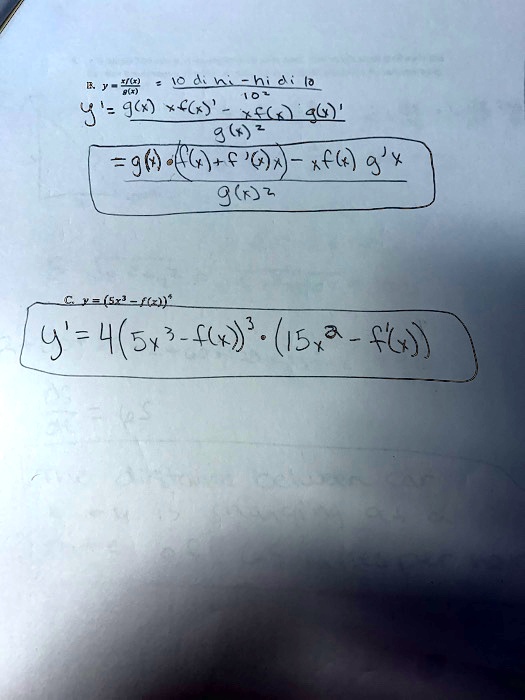 B. y = xf(x)/g(x) = lo di hi - hi di lo / lo²
y' = g(x) xf(x)' - xf(x) g(x)' / g(x)²
= g(x) • (f(x) + f'(x)x) - xf(x) g'x / g(x)²
C. y = (5x³ - f(x))⁴
y' = 4(5x³ - f(x))³ • (15x² - f'(x))